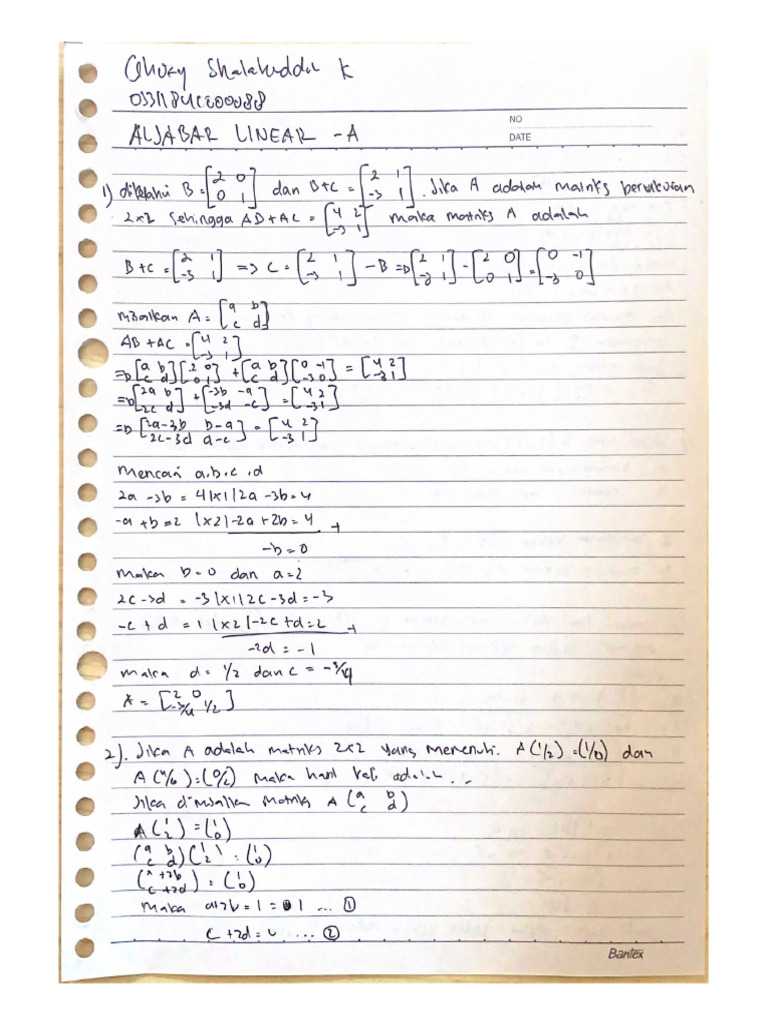 Shalahuddin K
ALJABAR LINEAR - A
NO
DATE
1) diketahui B = [2 0; 0 1] dan B+C = [2 1; -3 1]. Jika A adalah matriks berukuran
2x2 sehingga AB + AC = [4 2; -3 1] maka matriks A adalah
B+C = [2 1; -3 1] => C = [2 1; -3 1] - B => [2 1; -3 1] - [2 0; 0 1] = [0 -1; -3 0]
misalkan A = [a b; c d]
AB + AC = [4 2; -3 1]
=> [a b; c d] [2 0; 0 1] + [a b; c d] [0 -1; -3 0] = [4 2; -3 1]
=> [2a b; 2c d] + [-3b -a; -3d -c] = [4 2; -3 1]
=> [2a-3b b-a; 2c-3d a-c] = [4 2; -3 1]
Mencari a.b.c.d
2a - 3b = 4 |x1| 2a - 3b = 4
-a + b = 2 |x2| -2a + 2b = 4 +
-b = 0
Maka b = 0 dan a = 2
2c - 3d = -3 |x1| 2c - 3d = -3
-c + d = 1 |x2| -2c + d = 2 +
-2d = -1
maka d = 1/2 dan c = -3/4
A = [2 0; -3/4 1/2]
2). Jika A adalah matriks 2x2 yang memenuhi. A(1/2) = (1/0) dan
A(4/6) = (0/2) maka hasil kali adalah...
Jika dimisalkan matriks A (a b; c d)
A(1; 2) = (1; 0)
(a b; c d)(1; 2) = (1; 0)
(a+2b; c+2d) = (1; 0)
maka a+2b = 1 = 1 ... ①
c+2d = 0 ... ②
Bantex